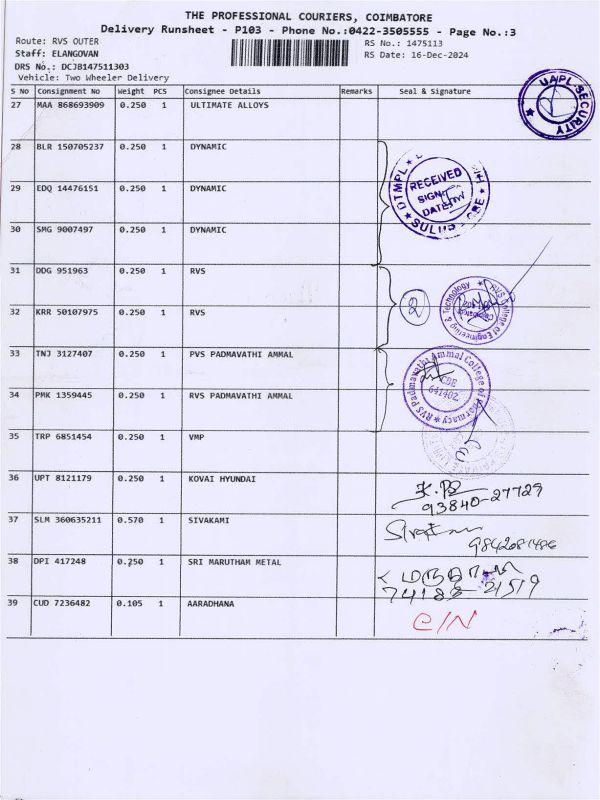 THE PROFESSIONAL COURIERS, COIMBATORE
Delivery Runsheet - P103 - Phone No.:0422-3505555 - Page No.:3
Route: RVS OUTER
RS No.: 1475113
Staff: ELANGOVAN
RS Date: 16-Dec-2024
DRS No.: DCJB147511303
Vehicle: Two Wheeler Delivery
S No Consignment No Weight PCS Consignee Details Remarks Seal & Signature
27 MAA 868693909 0.250 1 ULTIMATE ALLOYS
UAPL-SECURITY
28 BLR 150705237 0.250 1 DYNAMIC
29 EDQ 14476151 0.250 1 DYNAMIC
DTMPL
RECEIVED
SIGN:
DATE:
SULUR
30 SMG 9007497 0.250 1 DYNAMIC
31 DDG 951963 0.250 1 RVS
32 KRR 50107975 0.250 1 RVS
2
RVS College of Engineering & Technology
33 TNJ 3127407 0.250 1 PVS PADMAVATHI AMMAL
34 PMK 1359445 0.250 1 RVS PADMAVATHI AMMAL
RVS Padmavathi Ammal College of Pharmacy
CBE
641402
35 TRP 6851454 0.250 1 VMP
36 UPT 8121179 0.250 1 KOVAI HYUNDAI
93840-27729
37 SLM 360635211 0.570 1 SIVAKAMI
9842681486
38 DPI 417248 0.250 1 SRI MARUTHAM METAL
74188-21519
39 CUD 7236482 0.105 1 AARADHANA
C/N